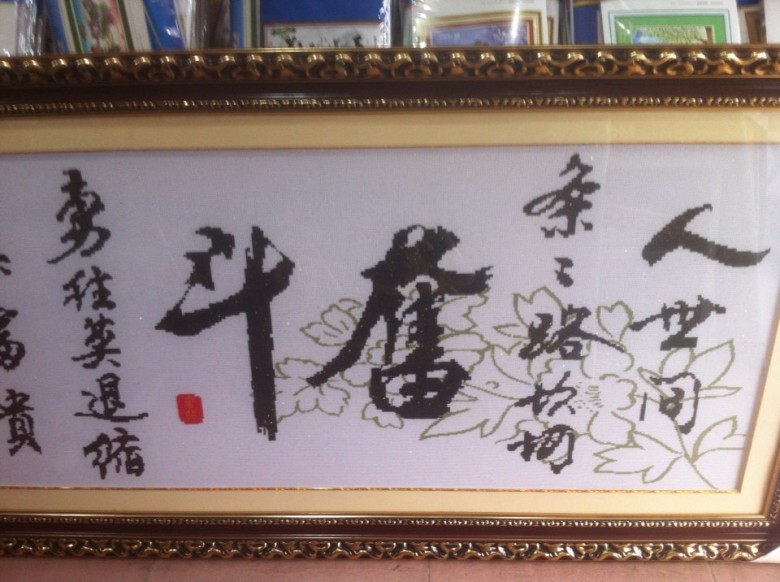 人世间
条々路坎坷
奮斗
勇往莫退缩
富貴